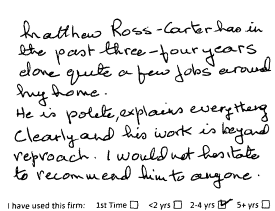 Matthew Ross-Carter has in
the past three-four years
done quite a few jobs around
my home.
He is polite, explains everything
clearly and his work is beyond
reproach. I would not hesitate
to recommend him to anyone.
I have used this firm: 1st Time ☐ <2 yrs ☐ 2-4 yrs ☑ 5+ yrs ☐